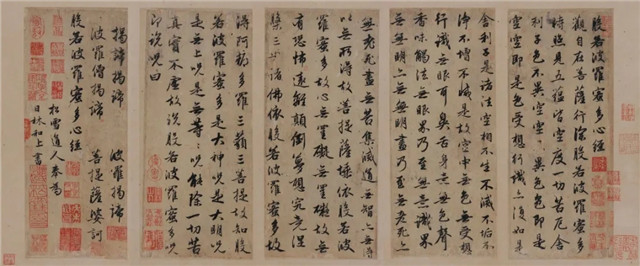 般若波羅蜜多心經
觀自在菩薩行深般若波羅蜜多
時照見五蘊皆空度一切苦厄舍
利子色不異空空不異色色即是
空空即是色受想行識亦復如是
舍利子是諸法空相不生不滅不垢不
淨不增不減是故空中無色無受想
行識無眼耳鼻舌身意無色聲
香味觸法無眼界乃至無意識界
無無明亦無無明盡乃至無老死亦
無老死盡無苦集滅道無智亦無得
以無所得故菩提薩埵依般若波
羅蜜多故心無罣礙無罣礙故無
有恐怖遠離顛倒夢想究竟涅
槃三世諸佛依般若波羅蜜多故
得阿耨多羅三藐三菩提故知般
若波羅蜜多是大神呪是大明呪
是無上呪是無等〻呪能除一切苦
真實不虛故說般若波羅蜜多呪
即說呪曰
揭諦揭諦 波羅揭諦
波羅僧揭諦 菩提薩婆訶
松雪道人奉為
日林和上書